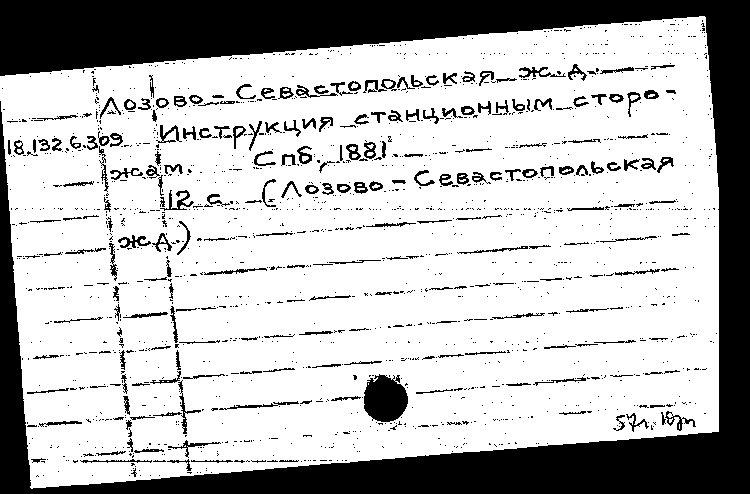 Лозово-Севастопольская ж.д.
18.132.6.309 Инструкция станционным сторо-
жам. Спб., 1881.
12 с. (Лозово-Севастопольская
ж.д.)